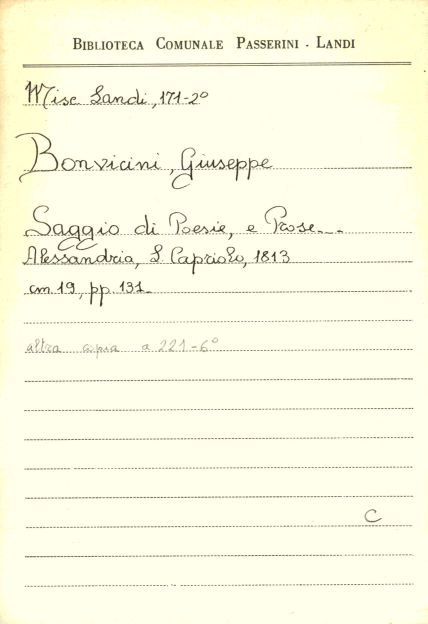 BIBLIOTECA COMUNALE PASSERINI - LANDI
Misc. Landi, 171-2°
Bonvicini, Giuseppe
Saggio di Poesie, e Prose...
Alessandria, L. Capriolo, 1813
cm 19, pp. 131.
altra copia a 221-6°
C